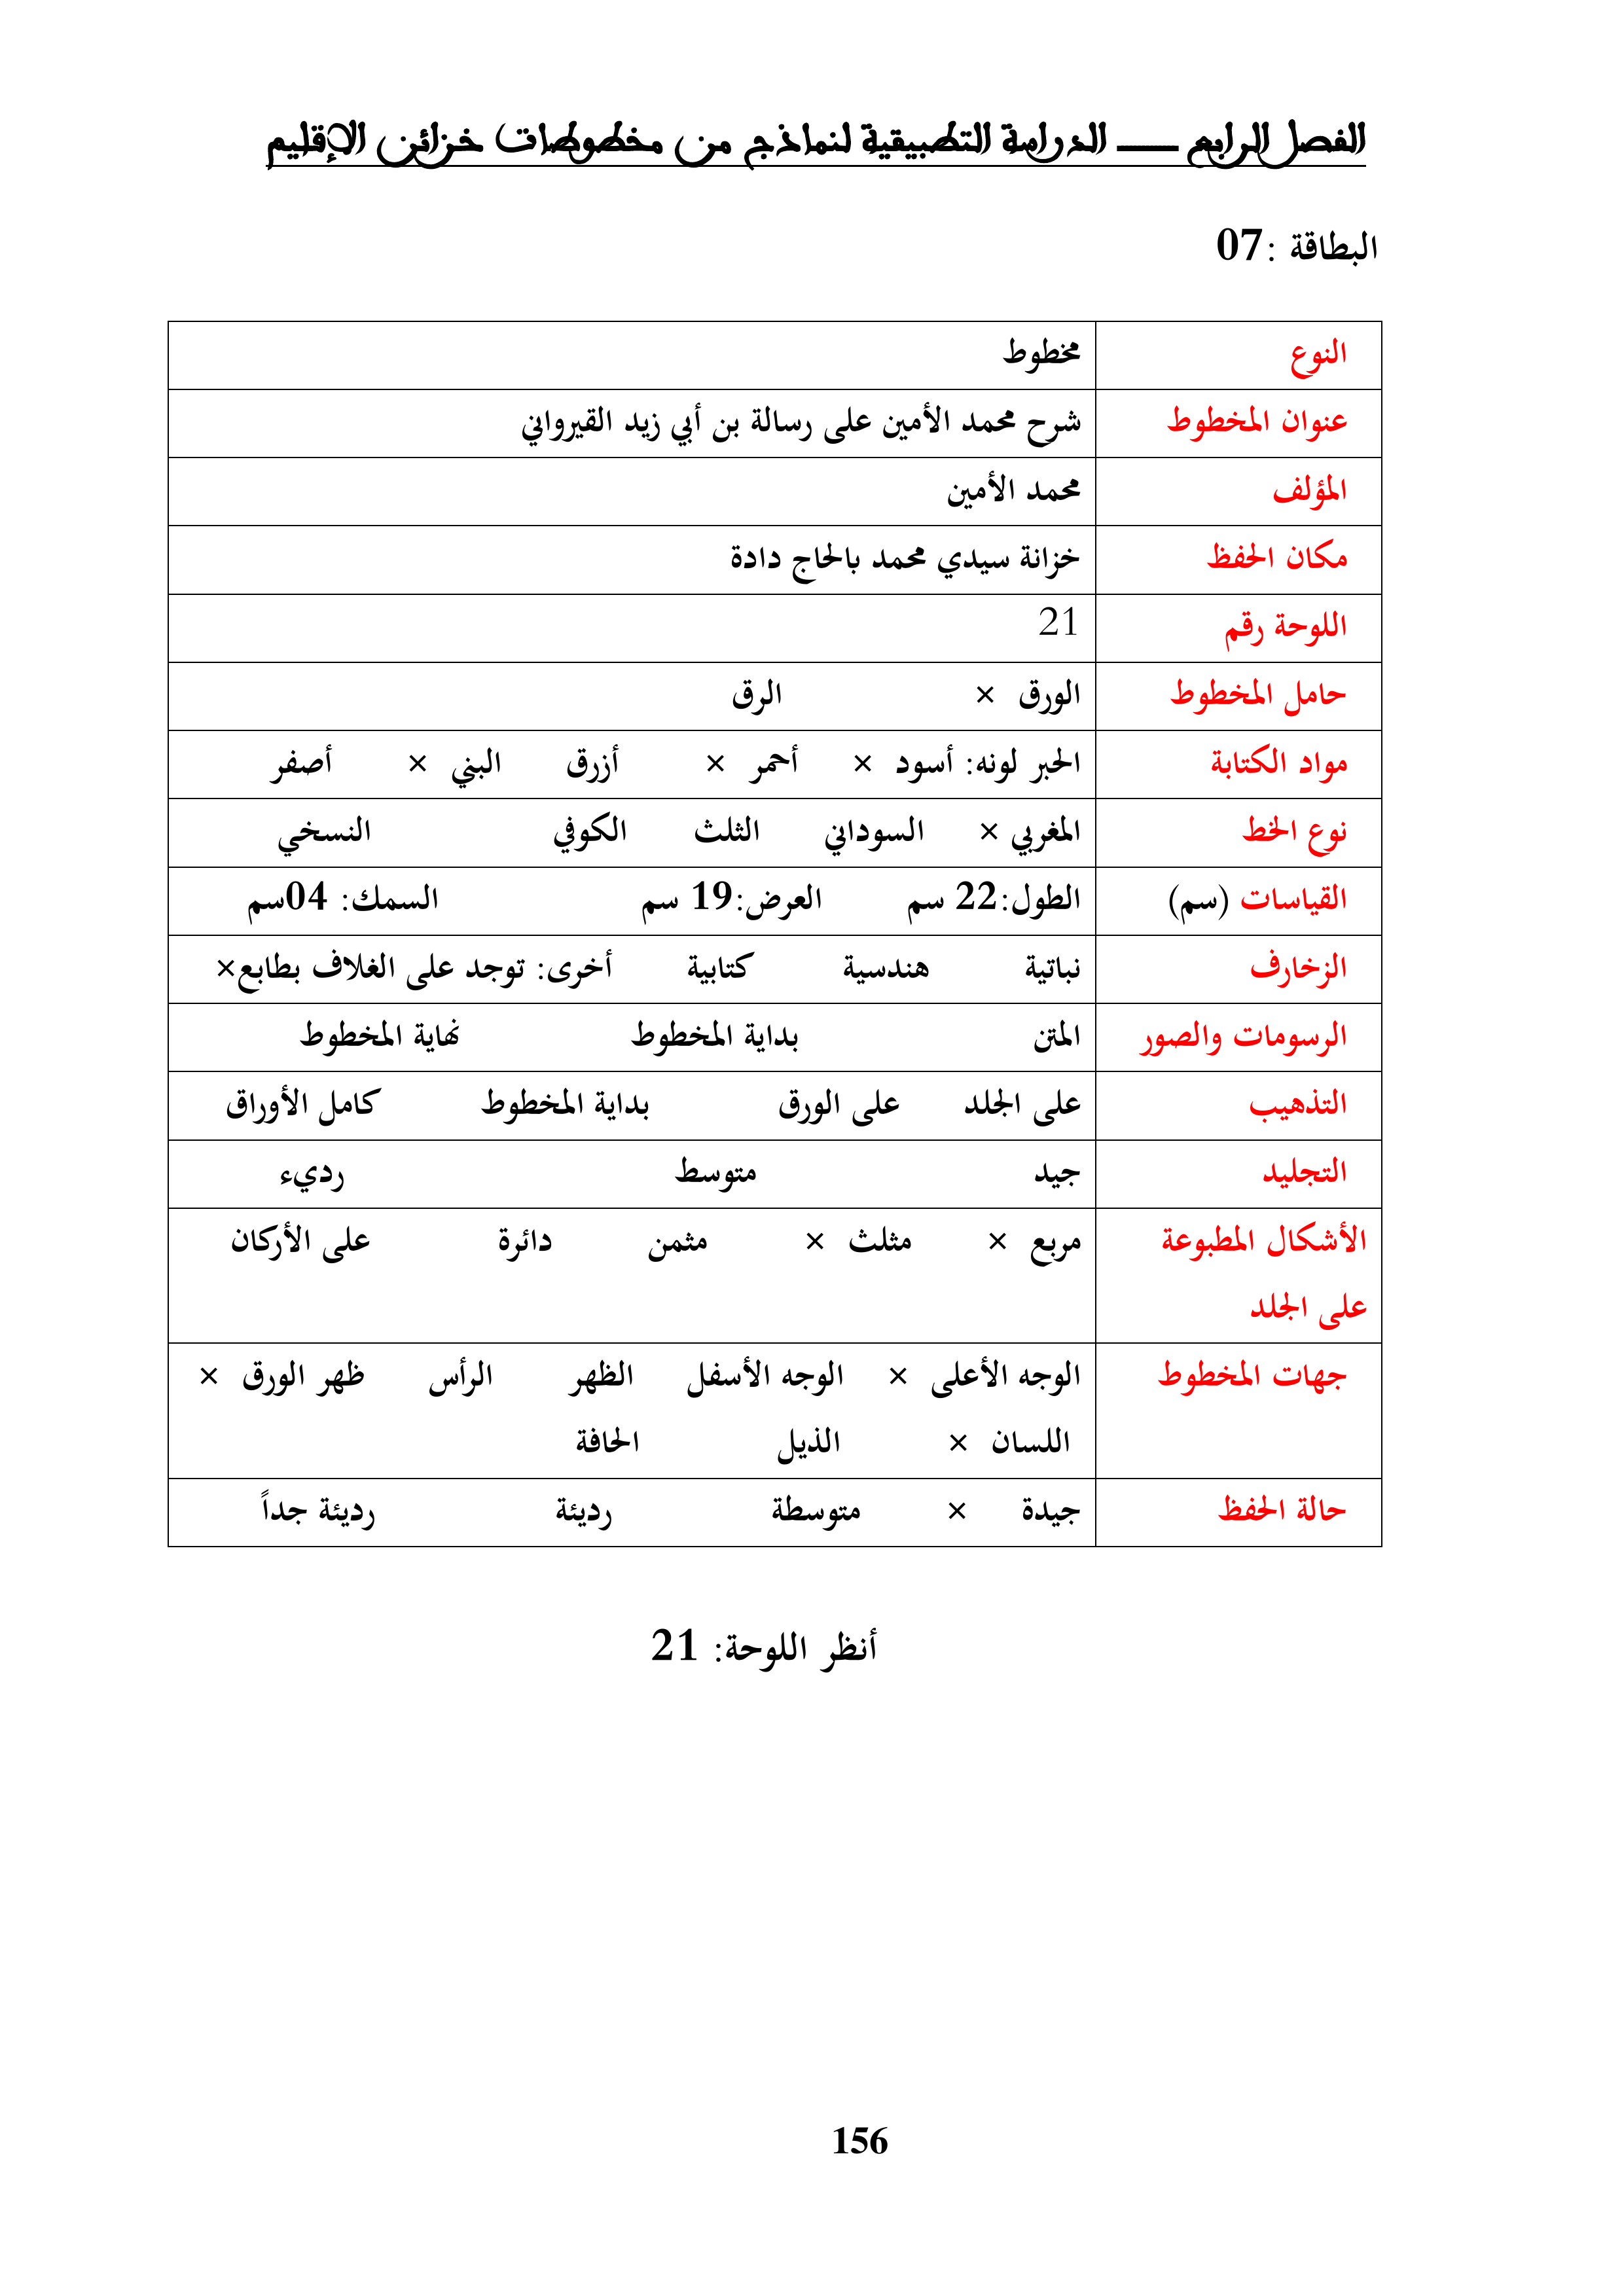 الفصل الرابع ــــــ الدراسة التطبيقية لنماذج من مخطوطات خزائن الإقليم
البطاقة :07
النوع مخطوط
عنوان المخطوط شرح محمد الأمين على رسالة بن أبي زيد القيرواني
المؤلف محمد الأمين
مكان الحفظ خزانة سيدي محمد بالحاج دادة
اللوحة رقم 21
حامل المخطوط الورق × الرق
مواد الكتابة الحبر لونه: أسود × أحمر × أزرق البني × أصفر
نوع الخط المغربي × السوداني الثلث الكوفي النسخي
القياسات (سم) الطول:22 سم العرض:19 سم السمك: 04سم
الزخارف نباتية هندسية كتابية أخرى: توجد على الغلاف بطابع×
الرسومات والصور المتن بداية المخطوط نهاية المخطوط
التذهيب على الجلد على الورق بداية المخطوط كامل الأوراق
التجليد جيد متوسط رديء
الأشكال المطبوعة مربع × مثلث × مثمن دائرة على الأركان
على الجلد
جهات المخطوط الوجه الأعلى × الوجه الأسفل الظهر الرأس ظهر الورق ×
اللسان × الذيل الحافة
حالة الحفظ جيدة × متوسطة رديئة رديئة جداً
أنظر اللوحة: 21
156